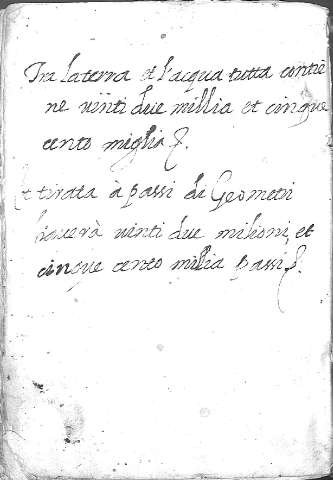 Tra la terra et l'acqua tutta contiē
ne vinti due millia et cinque
cento miglia.
Et tirata à passi di Geometri
haverà vinti due milioni, et
cinque cento milia passi.